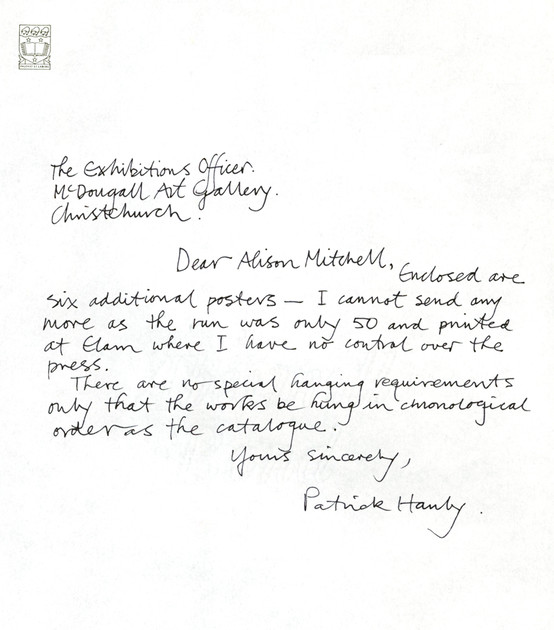 The Exhibitions Officer.
McDougall Art Gallery.
Christchurch.
Dear Alison Mitchell,
Enclosed are
six additional posters — I cannot send any
more as the run was only 50 and printed
at Elam where I have no control over the
press.
There are no special hanging requirements
only that the works be hung in chronological
order as the catalogue.
Yours sincerely,
Patrick Hanly.